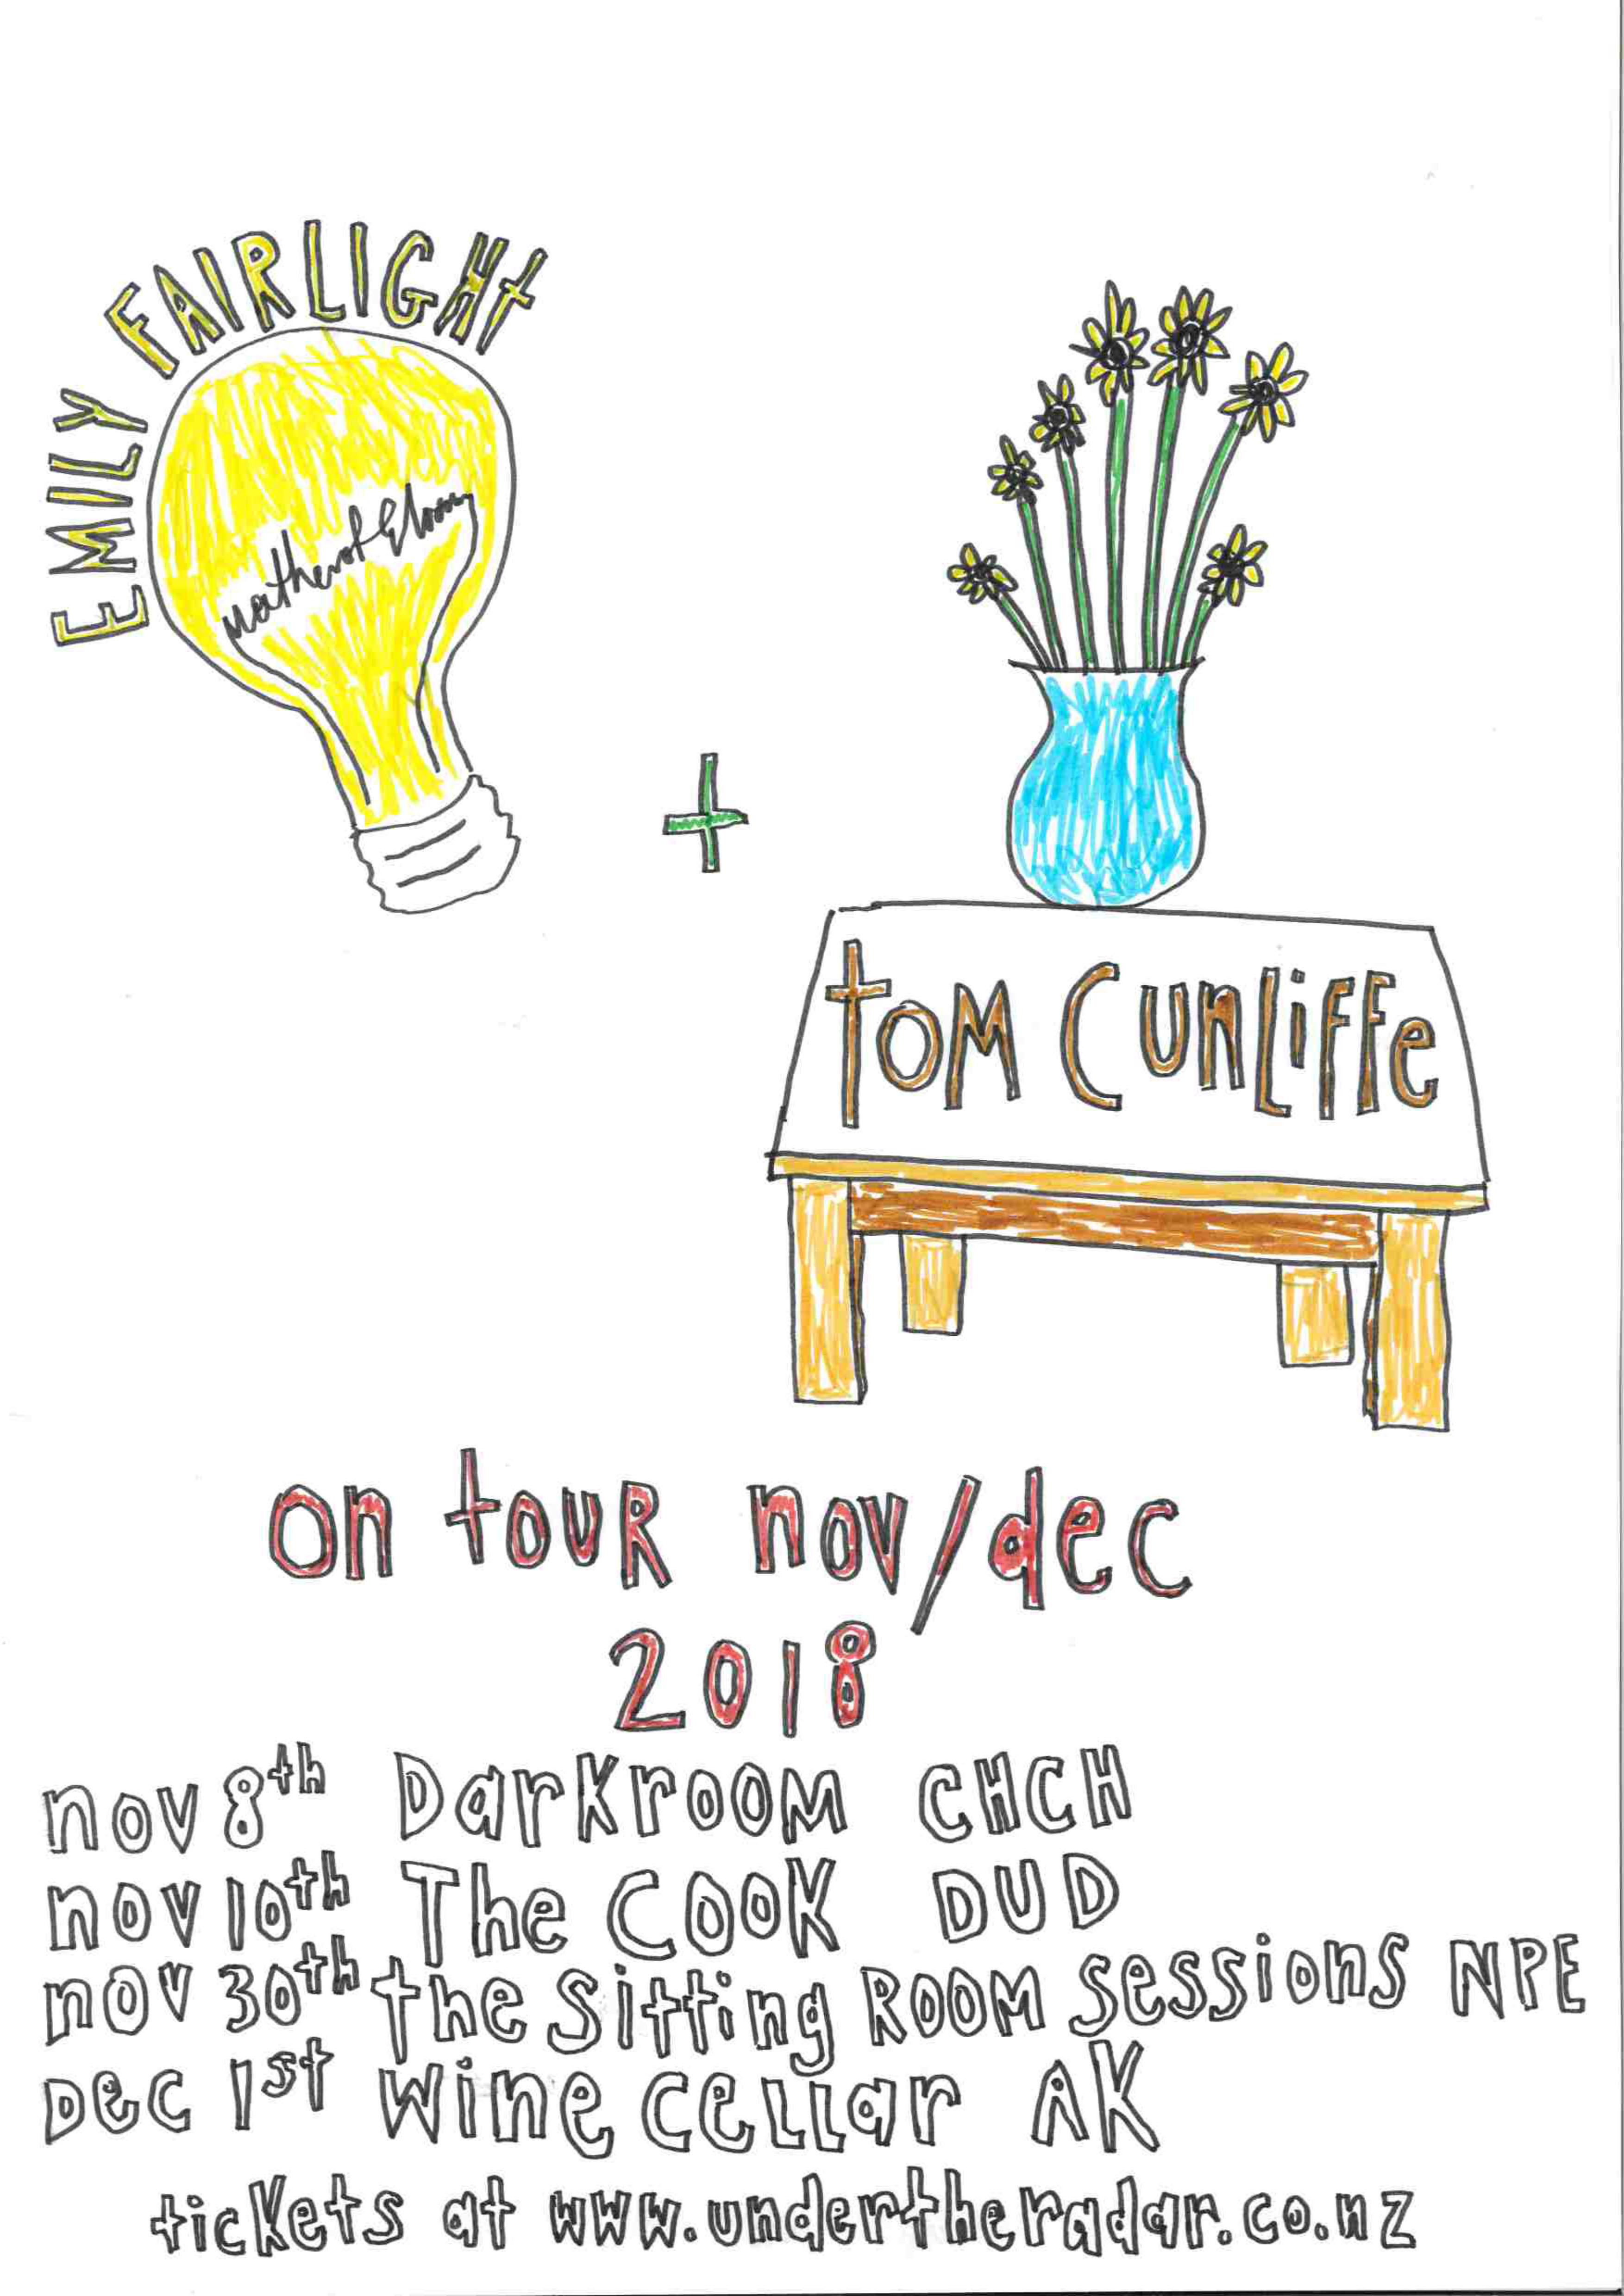 EMILY FAIRLIGHt
mother of gloom
+
tOM CUnLiFFe
on touR nov/dec
2018
nov 8th Darkroom CHCH
nov 10th The COOK DUD
nov 30th the Sitting ROOM Sessions NPE
Dec 1st wine ceLLar AK
tickets at www.undertheradar.co.nz